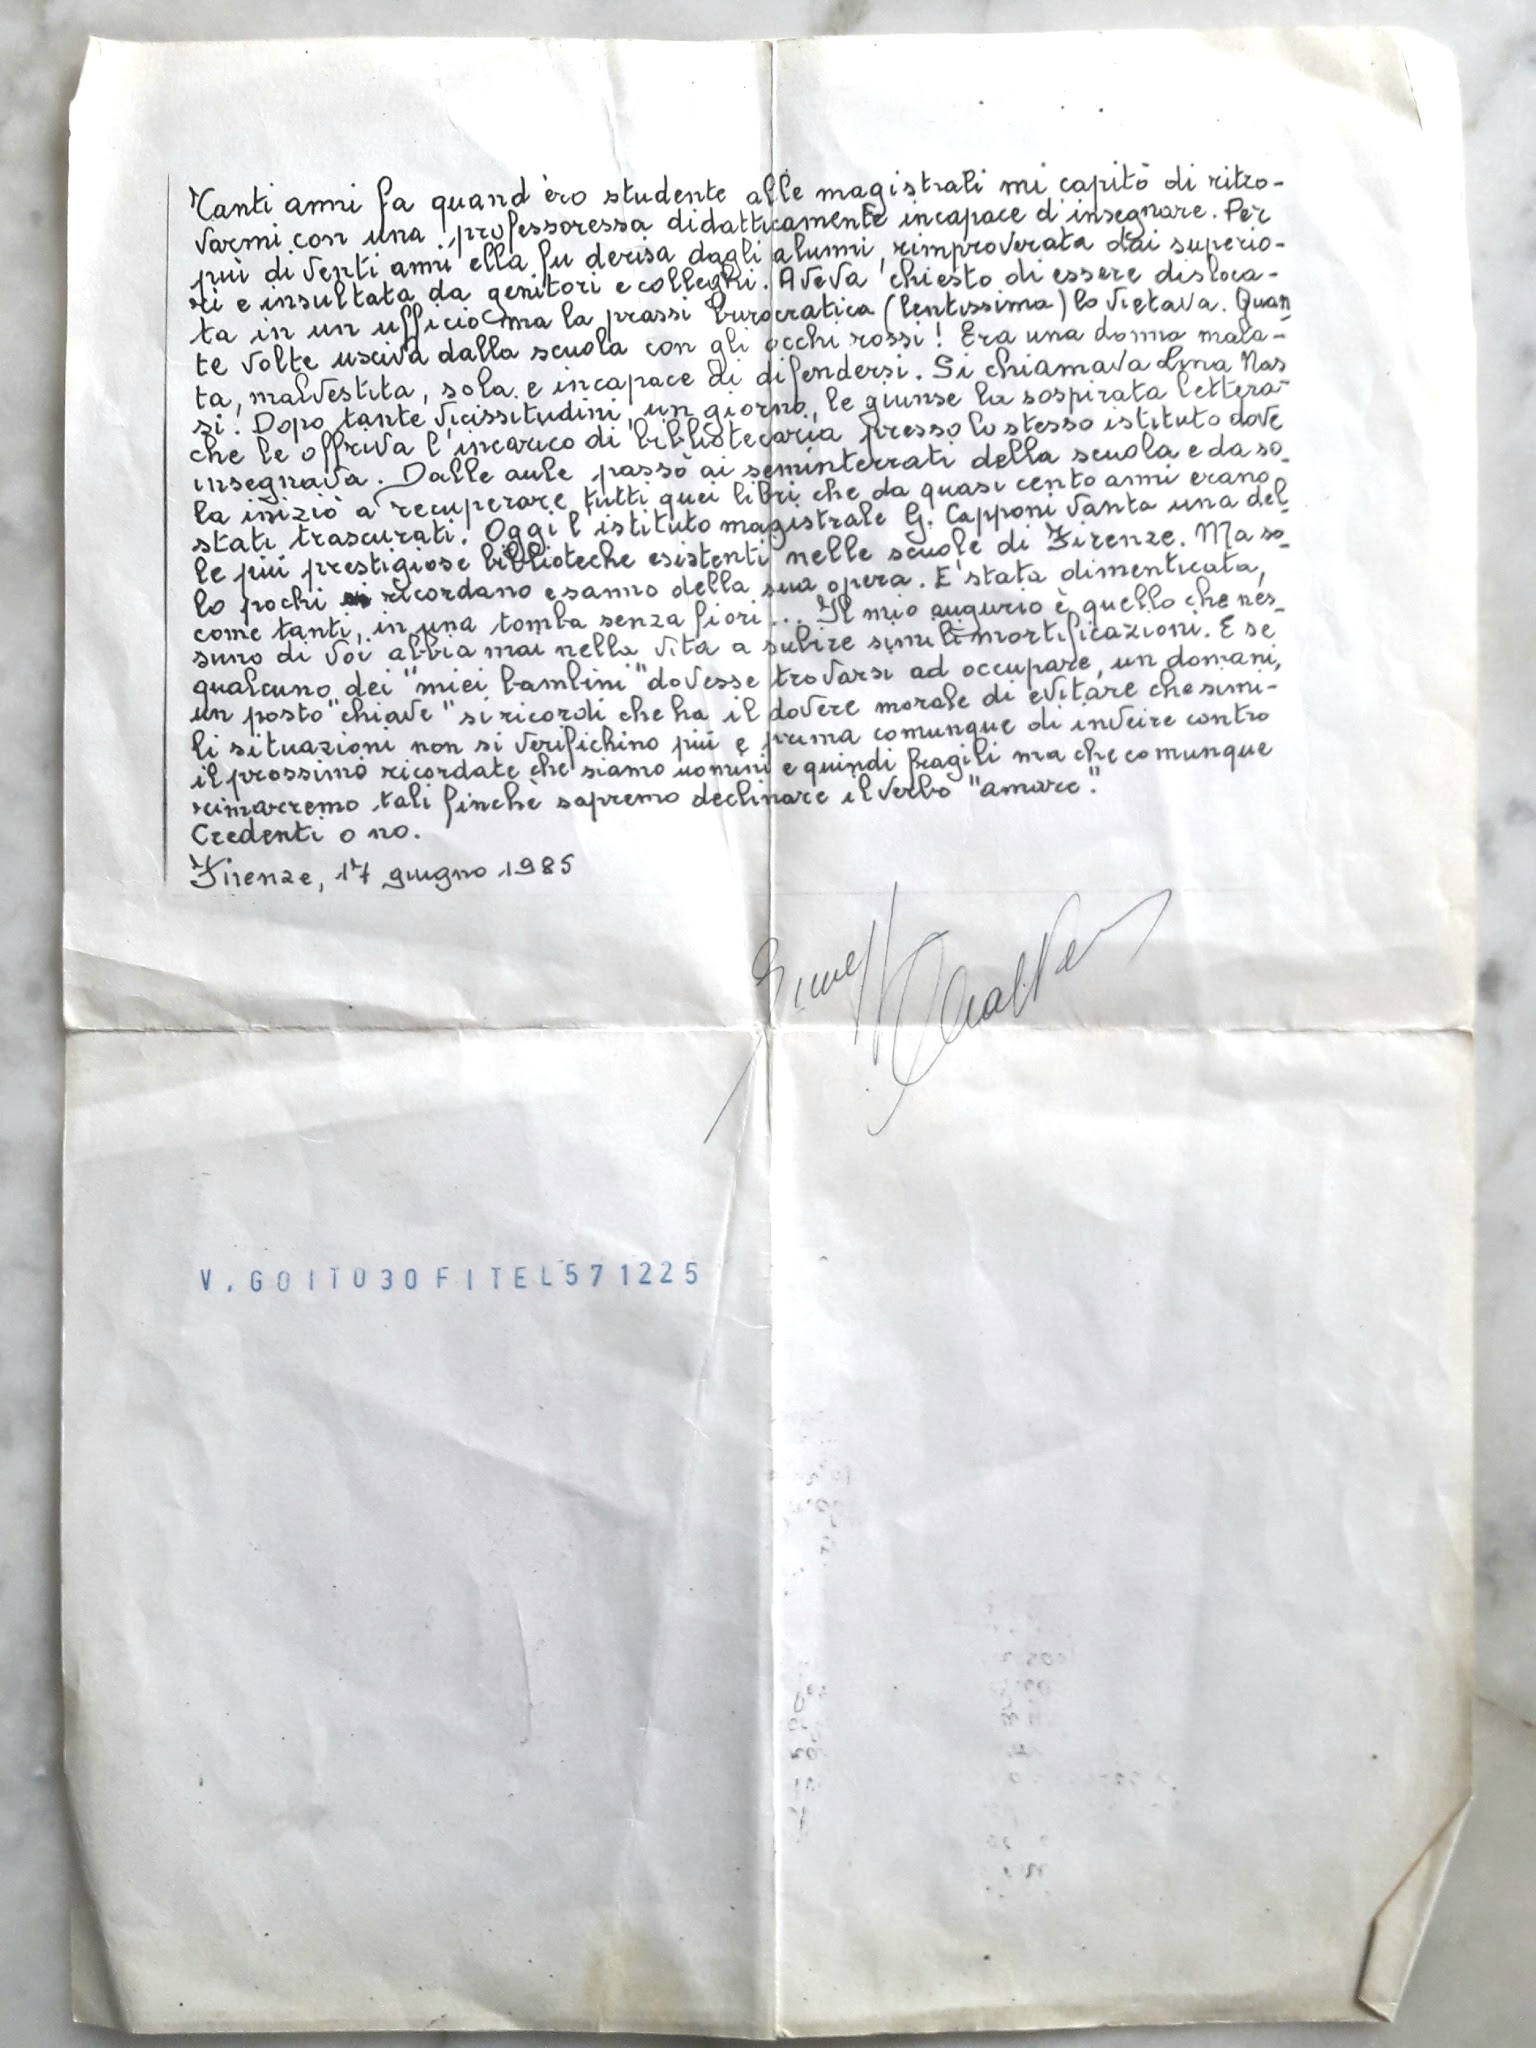 Tanti anni fa quand'ero studente alle magistrali mi capitò di ritro-
varmi con una professoressa didatticamente incapace d'insegnare. Per
più di venti anni ella fu derisa dagli alunni, rimproverata dai superio-
ri e insultata da genitori e colleghi. Aveva chiesto di essere disloca-
ta in un ufficio ma la prassi burocratica (lentissima) lo vietava. Quan
te volte usciva dalla scuola con gli occhi rossi! Era una donna mala-
ta, malvestita, sola e incapace di difendersi. Si chiamava Lina Nas
si. Dopo tante vicissitudini, un giorno, le giunse la sospirata lettera
che le offriva l'incarico di bibliotecaria presso lo stesso istituto dove
insegnava. Dalle aule passò ai seminterrati della scuola e da so-
la iniziò a recuperare tutti quei libri che da quasi cento anni erano
stati trascurati. Oggi l'istituto magistrale G. Capponi vanta una del
le più prestigiose biblioteche esistenti nelle scuole di Firenze. Ma so-
lo pochi ricordano e sanno della sua opera. E' stata dimenticata,
come tanti, in una tomba senza fiori... Il mio augurio è quello che nes-
suno di voi abbia mai nella vita a subire simili mortificazioni. E se
qualcuno dei "miei bambini" dovesse trovarsi ad occupare, un domani,
un posto "chiave" si ricordi che ha il dovere morale di evitare che simi-
li situazioni non si verifichino più e prima comunque di inveire contro
il prossimo ricordate che siamo uomini e quindi fragili ma che comunque
rimarremo tali finchè sapremo declinare il verbo "amare".
Credenti o no.
Firenze, 17 giugno 1985
V. GOITO 30 FI TEL 571225